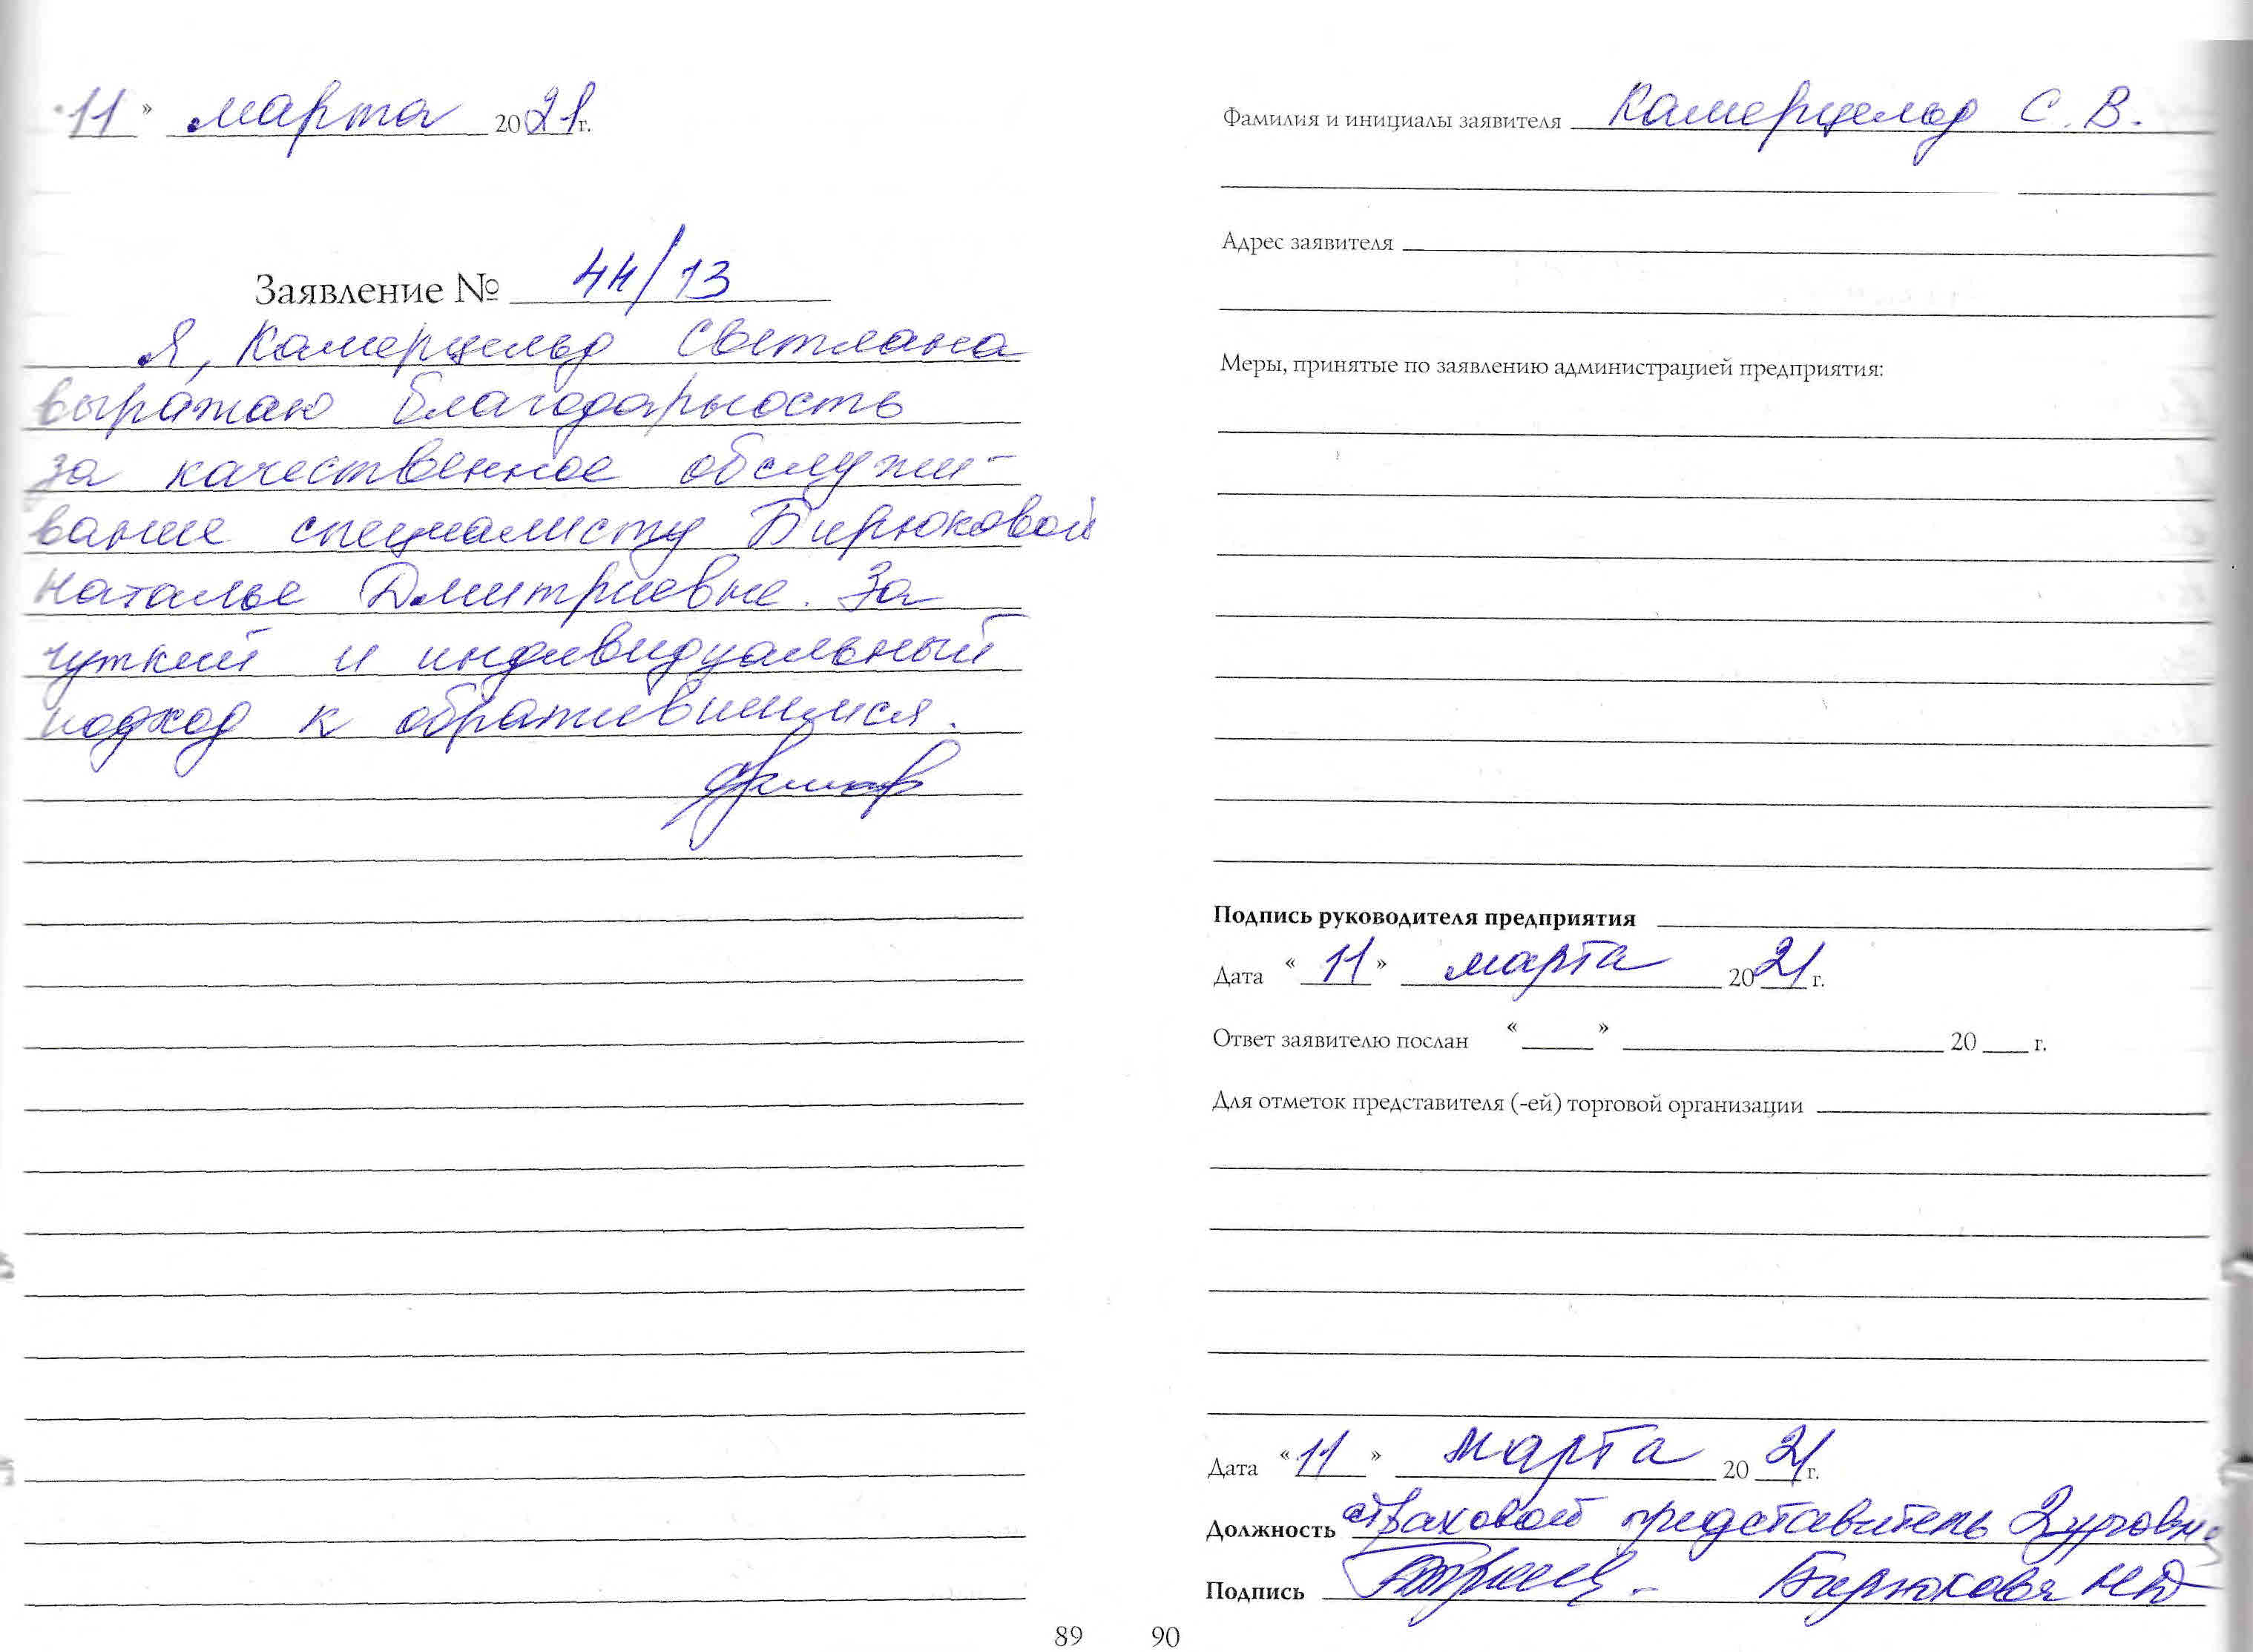 «11» марта 2021г.
Заявление № 44/13
Я, Камерцельд Светлана
выражаю благодарность
за качественное обслужи-
вание специалисту Бирюковой
Наталье Дмитриевне. За
чуткий и индивидуальный
подход к обратившимся.
89
Фамилия и инициалы заявителя Камерцельд С.В.
Адрес заявителя
Меры, принятые по заявлению администрацией предприятия:
Подпись руководителя предприятия
Дата «11» марта 2021 г.
Ответ заявителю послан « » 20 г.
Для отметок представителя (-ей) торговой организации
Дата «11» марта 2021 г.
Должность страховой представитель 2 уровня
Подпись Бирюкова НД
90